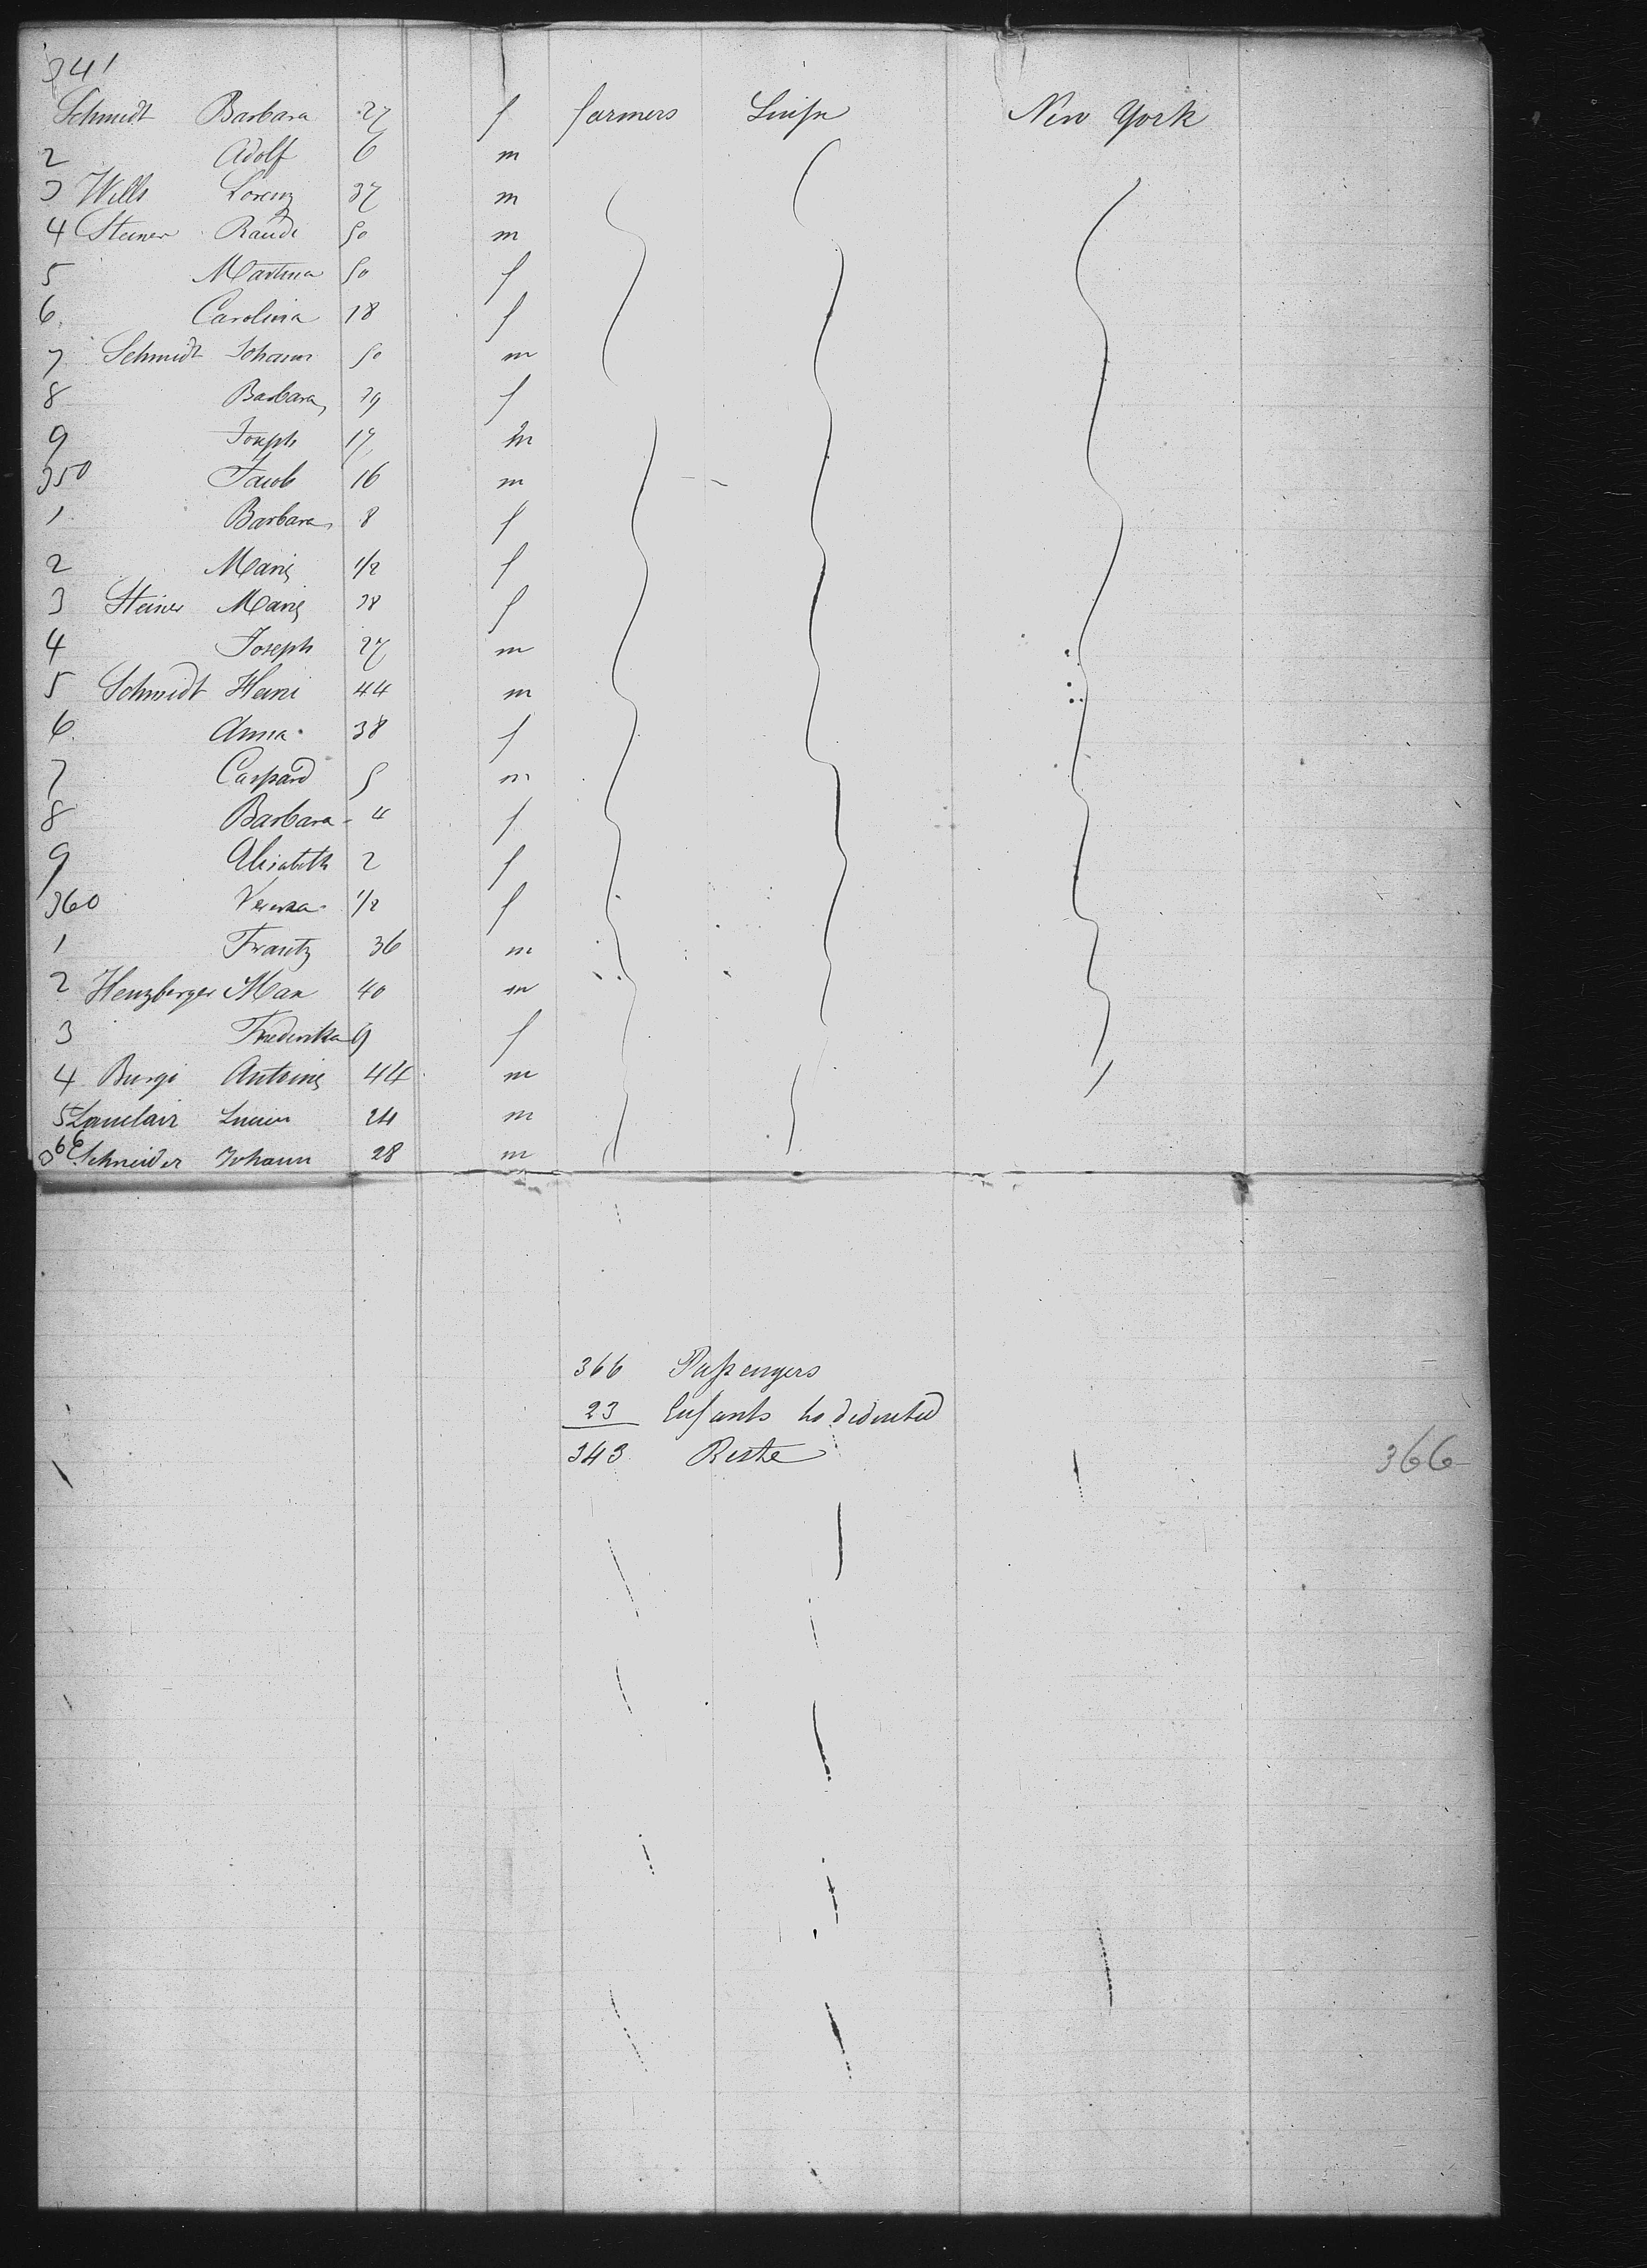 341
Schmidt Barbara 27 f farmers Suisse New York
2 Adolf 6 m
3 Wills Lorenz 37 m
4 Steiner 50 m
5 Martina 50 f
6. Carolina 18 f
7 Schmidt Johann 50 m
8 Barbara 39 f
9 Joseph 17 m
350 Jacob 16 m
1 Barbara 8 f
2 Marie 1/2 f
3 Steiner Marie 38 f
4 Joseph 27 m
5 Schmidt Heini 44 m
6. Anna 38 f
7 Caspard 5 m
8 Barbara 4 f
9 Elisabeth 2 f
360 Verena 1/2 f
1 Frantz 36 m
2 Henzberger Max 40 m
3 Frederika 9 f
4 Burgi Antoine 44 m
5 Lucien 24 m
366 Schneider Johann 28 m
366 Passengers
23 Enfants to deducted
343 Reste
366